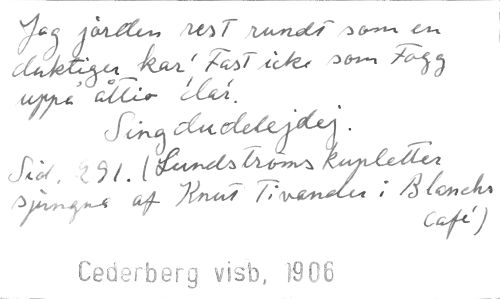 Jag jorden rest rundt som en
duktiger kar! Fast icke som Fogg
uppå åttio dar.
Singdudelejdej.
Sid. 291. (Lundströms kupletter
sjungna af Knut Tivander i Blanchs
café)
Cederberg visb, 1906